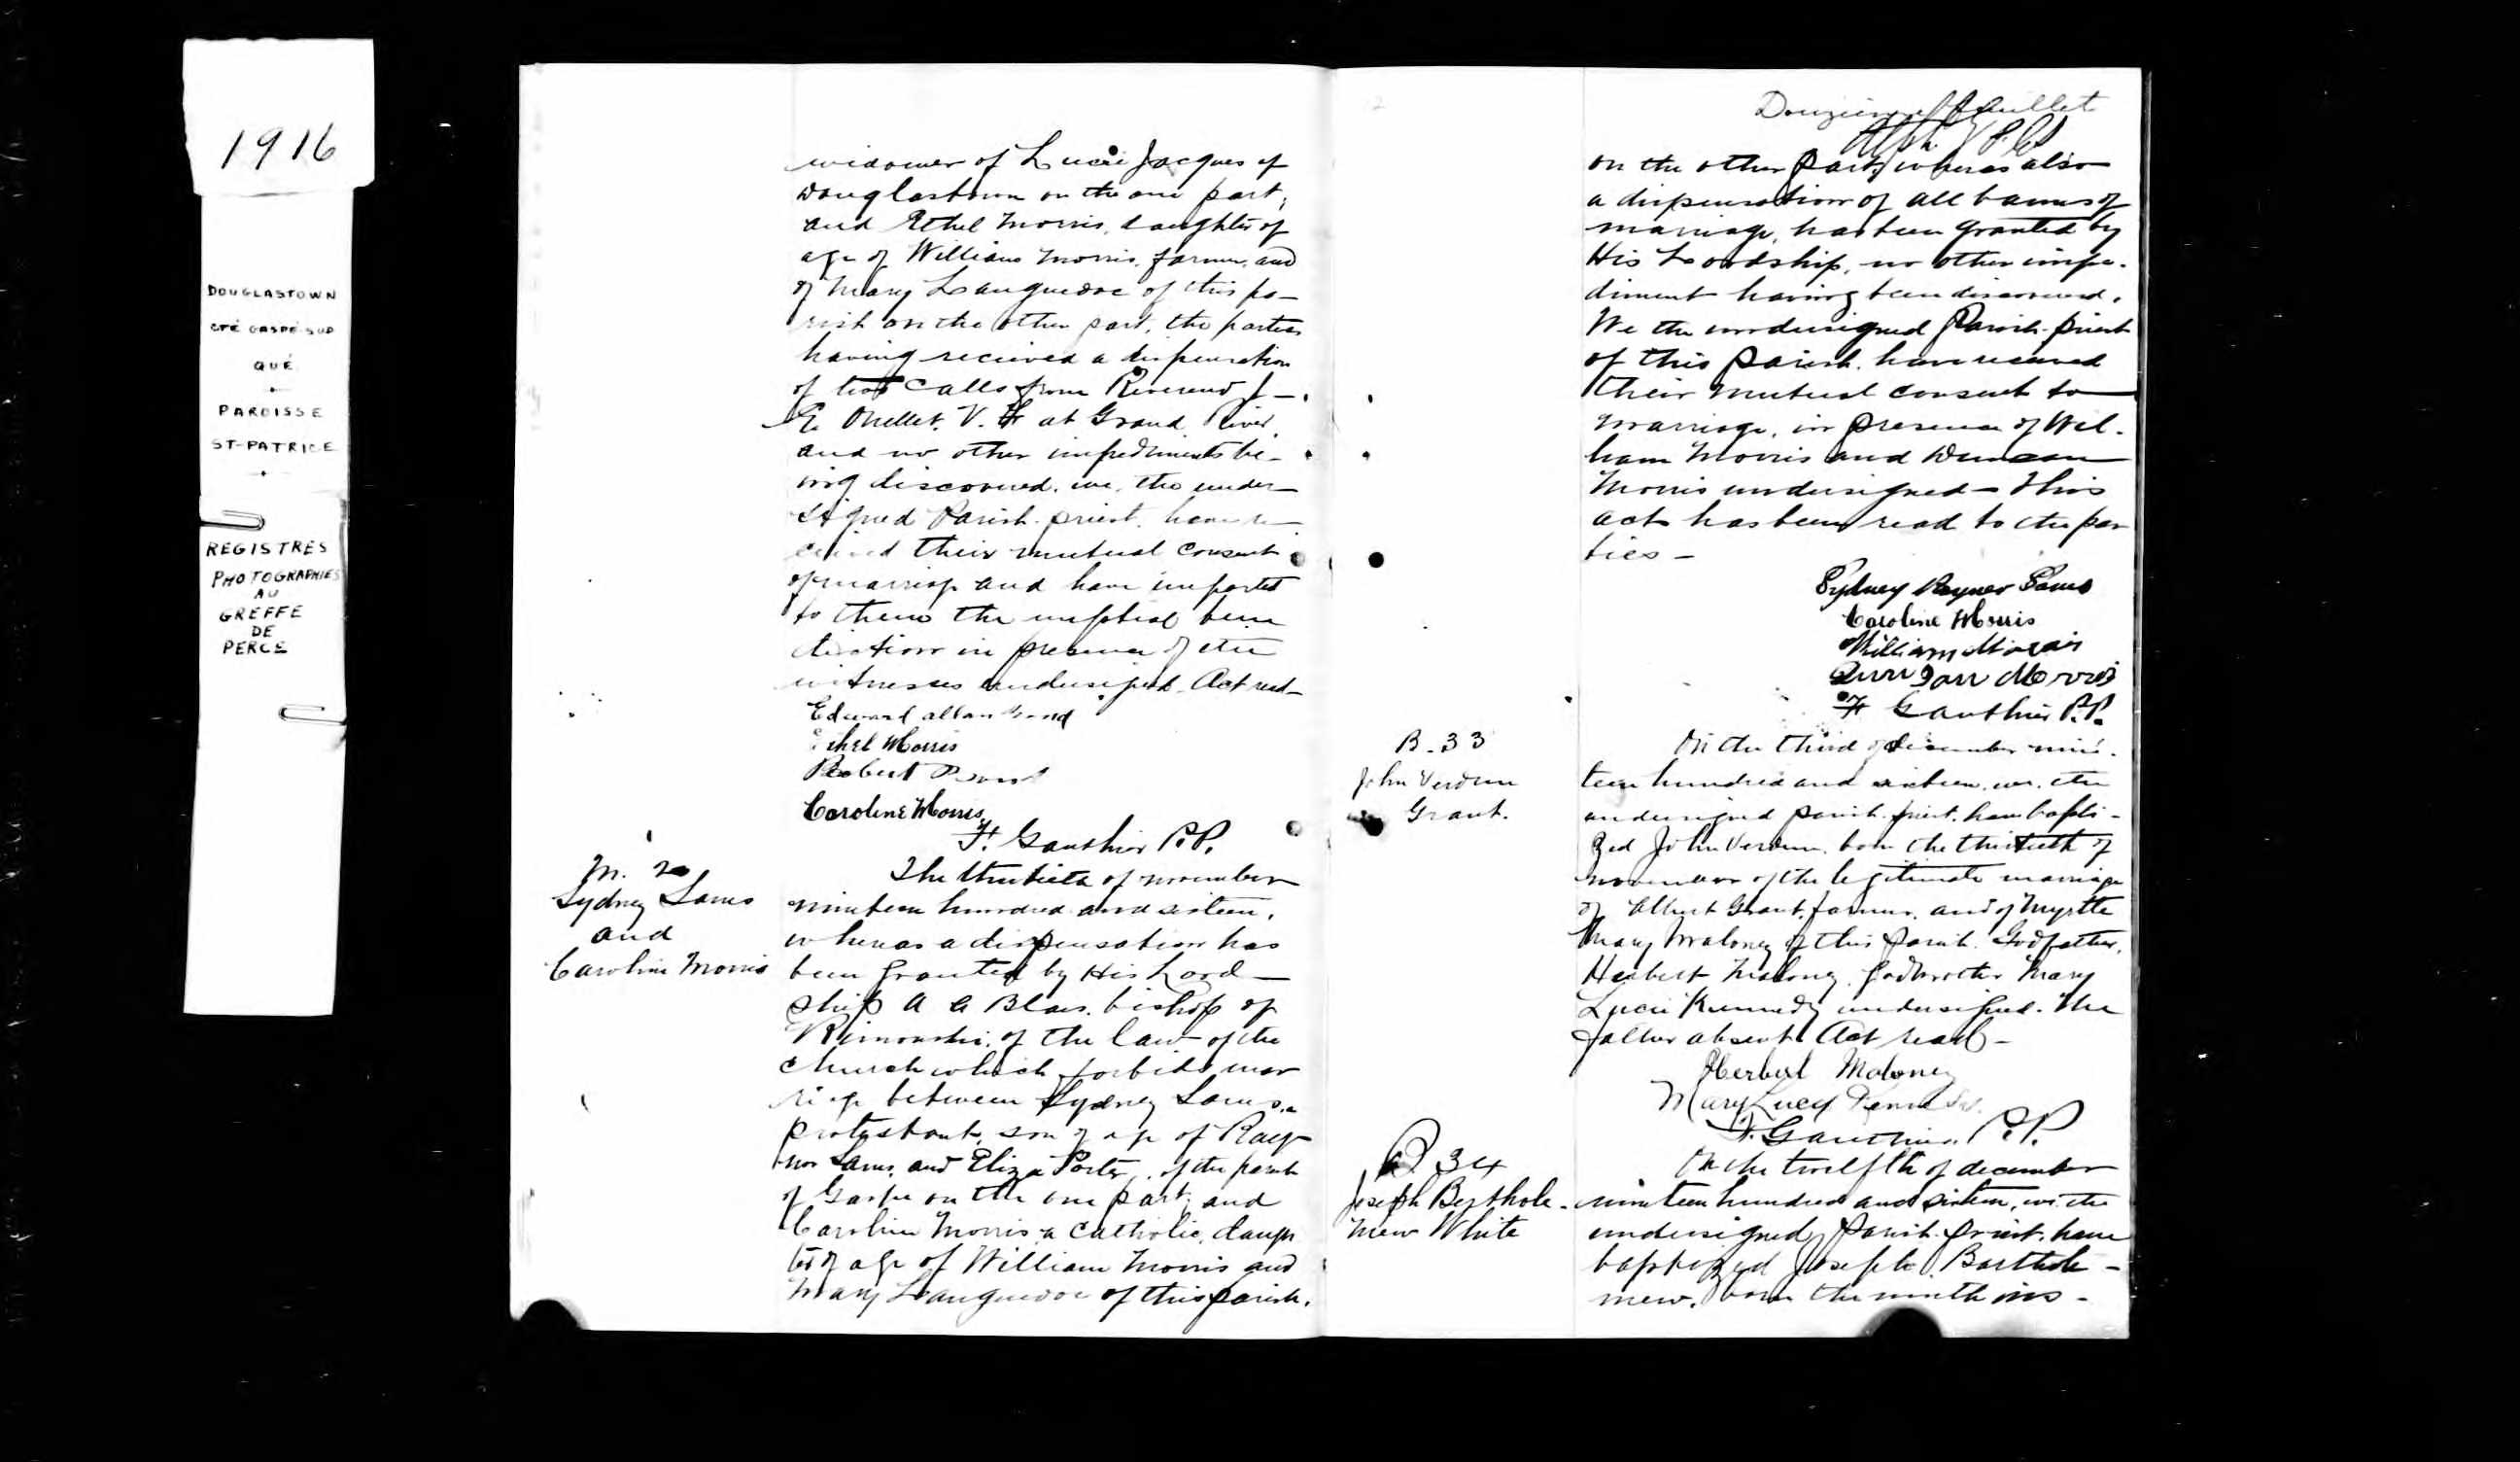 1916
DOUGLASTOWN
CTÉ GASPÉ-SUD
QUÉ
PAROISSE
ST-PATRICE
REGISTRES
PHOTOGRAPHIES
AU
GREFFE
DE
PERCÉ
widower of Lucie Jacques of
Douglastown on the one part;
and Ethel Morris, daughter of
age of William Morris, farmer, and
of Mary Languedoc of this pa-
rish on the other part, the parties
having recieved a dispensation
of two calls from Reverend J-
E. Ouellet, V. F. at Grand River,
and no other impediments be-
ing discovered, we, the under-
signed Parish-priest, have re-
ceived their mutual consent
of marriage and have imparted
to them the nuptial bene
diction in presence of the
witnesses undersigned. Act read-
Edward Allan
Ethel Morris
Robert
Caroline Morris
F. Gauthier P.P.
M. 20
Sydney Sams
and
Caroline Morris
The thirtieth of november
nineteen hundred and sixteen,
whereas a dispensation has
been granted by His Lord-
ship A A Blais, bishop of
Rimouski, of the law of the
church which forbids mar
riage between Sydney Sams, a
protestant, son of age of Ray-
nor Sams, and Eliza Porter, of the parish
of Gaspe on the one part; and
Caroline Morris a catholic, daugh
ter of age of William Morris and
Mary Languedoc of this parish,
Douzième feuillet
on the other part, whereas also
a dispensation of all banns of
marriage, has been granted by
His Lordship, no other impe-
diment having been discovered,
We the undersigned Parish-priest
of this parish, have received
their mutual consent to
marriage, in presence of Wil-
liam Morris and Duncan
Morris undersigned- This
act has been read to the par
ties-
Sydney Raynor Sams
Caroline Morris
William Morris
Duncan Morris
F Gauthier P.P.
B. 33
John Verdun
Grant.
On the third of december nine-
teen hundred and sixteen, we, the
undersigned parish-priest, have bapti-
zed John Verdun, born the thirtieth of
november of the legitimate marriage
of Albert Grant, farmer, and of Myrtle
Mary Maloney of this parish. Godfather,
Herbert Maloney, godmother Mary
Lucie Kennedy undersigned. The
father absent. Act read-
Herbert Maloney
Mary Lucy Kennedy
F. Gauthier P.P.
B 34
Joseph Barthole-
mew White
On the twelfth of december
nineteen hundred and sixteen, we the
undersigned Parish-priest, have
baptized Joseph Barthole-
mew, born the ninth ins-